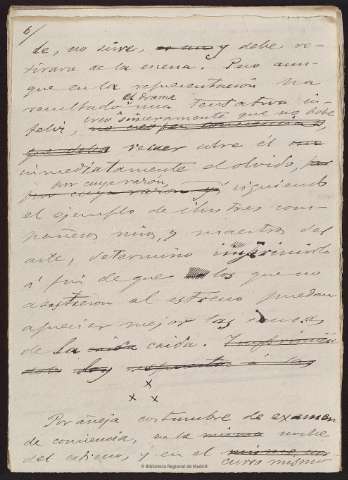 6/
de, no sirve, y debe re-
tirarse de la escena. Pero aun-
que en la representación ha
resultado el drama una tentativa in-
feliz, creo sinceramente que no debe
caer sobre él
inmediatamente el olvido,
por cuya razón, siguiendo
el ejemplo de ilustres com-
pañeros míos, y maestros del
arte, determino imprimirlo
á fin de que los que no
asistieron al estreno puedan
apreciar mejor las causas
de la caida. Imprimiendo
los respuesta á las
x
x x
Por añeja costumbre de examen
de conciencia, en la noche
del estreno, y en el
curso mismo
© Biblioteca Regional de Madrid